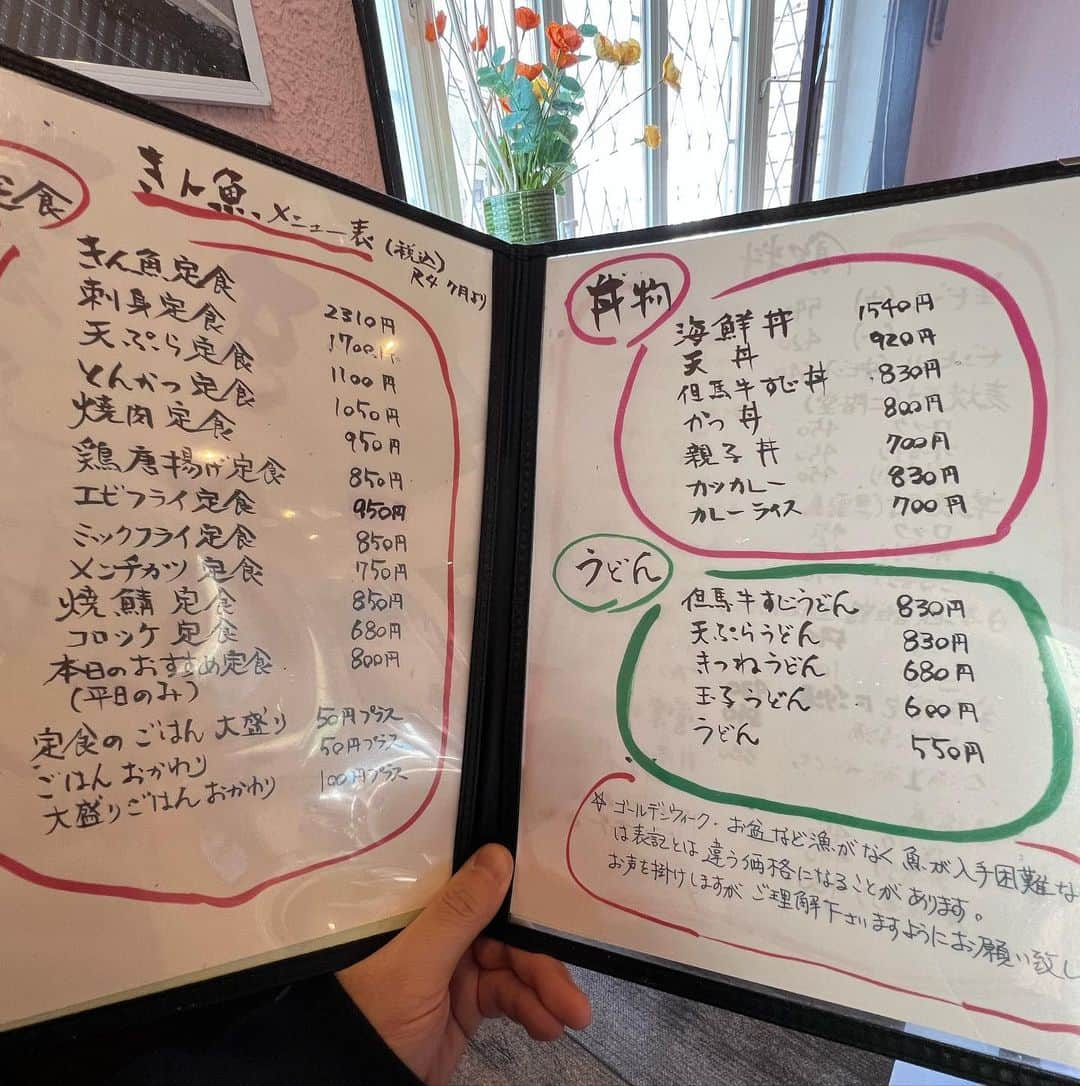 定食
きん魚 メニュー表 (税込)
R4 7月より
きん魚定食 2310円
刺身定食 1700円
天ぷら定食 1100円
とんかつ定食 1050円
焼肉定食 950円
鶏唐揚げ定食 850円
エビフライ定食 950円
ミックフライ定食 850円
メンチカツ定食 750円
焼鯖定食 850円
コロッケ定食 680円
本日のおすすめ定食 800円
(平日のみ)
定食のごはん大盛り 50円プラス
ごはんおかわり 50円プラス
大盛りごはんおかわり 100円プラス
丼物
海鮮丼 1540円
天丼 920円
但馬牛すじ丼 830円
かつ丼 800円
親子丼 700円
カツカレー 830円
カレーライス 700円
うどん
但馬牛すじうどん 830円
天ぷらうどん 830円
きつねうどん 680円
玉子うどん 600円
うどん 550円
☆ゴールデンウィーク・お盆など漁がなく魚が入手困難な
は表記とは違う価格になることがあります。
お声を掛けしますがご理解下さいますようにお願い致し